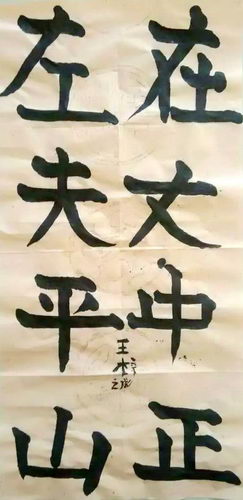 在丈中正
左夫平山
王